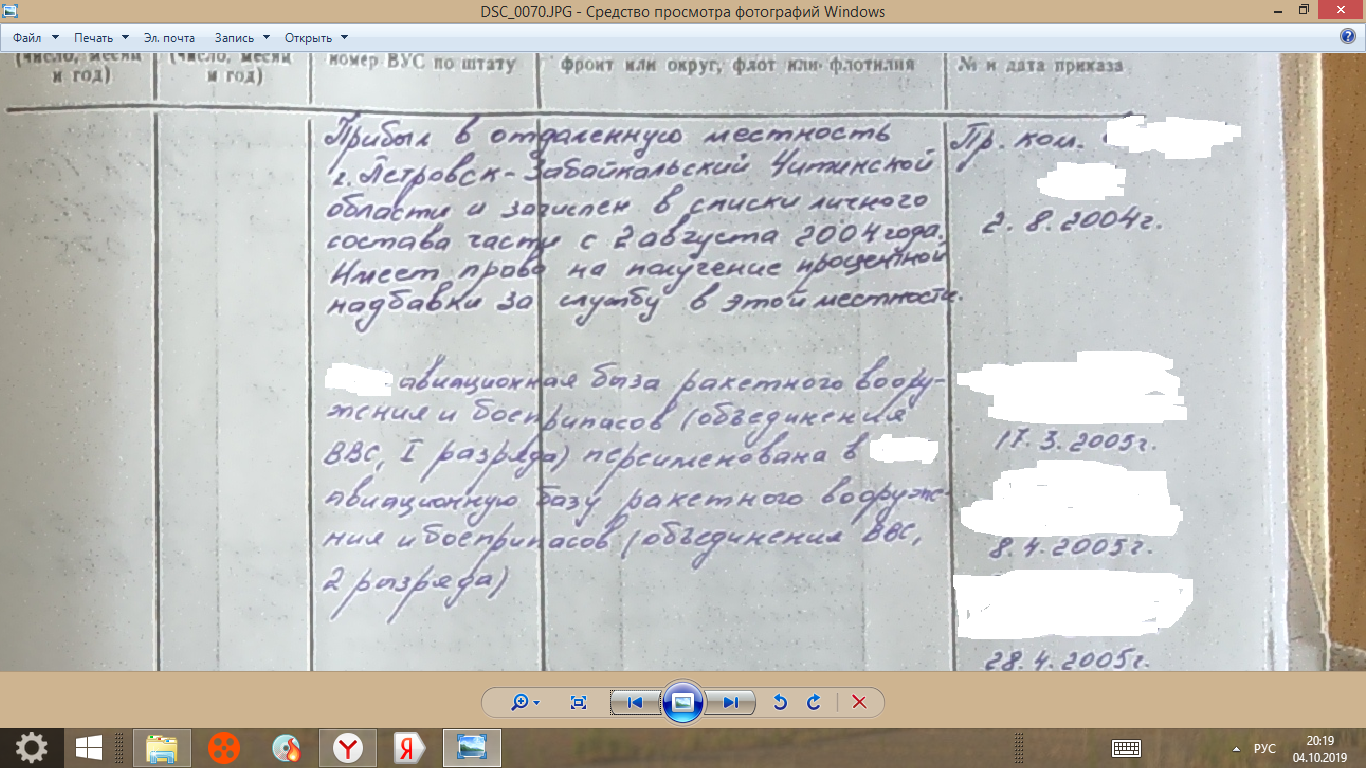 DSC_0070.JPG - Средство просмотра фотографий Windows
Файл Печать Эл. почта Запись Открыть
(число, месяц и год)
(число, месяц и год)
номер ВУС по штату
фронт или округ, флот или флотилия
№ и дата приказа
Прибыл в отдаленную местность
г. Петровск-Забайкальский Читинской
области и зачислен в списки личного
состава части с 2 августа 2004 года.
Имеет право на получение процентной
надбавки за службу в этой местности.
Пр. ком.
2. 8. 2004г.
авиационная база ракетного воору-
жения и боеприпасов (объединения
ВВС, I разряда) переименована в
авиационную базу ракетного вооруж-
ния и боеприпасов (объединения ВВС,
2 разряда)
17. 3. 2005г.
8. 4. 2005г.
28. 4. 2005г.
РУС
20:19
04.10.2019